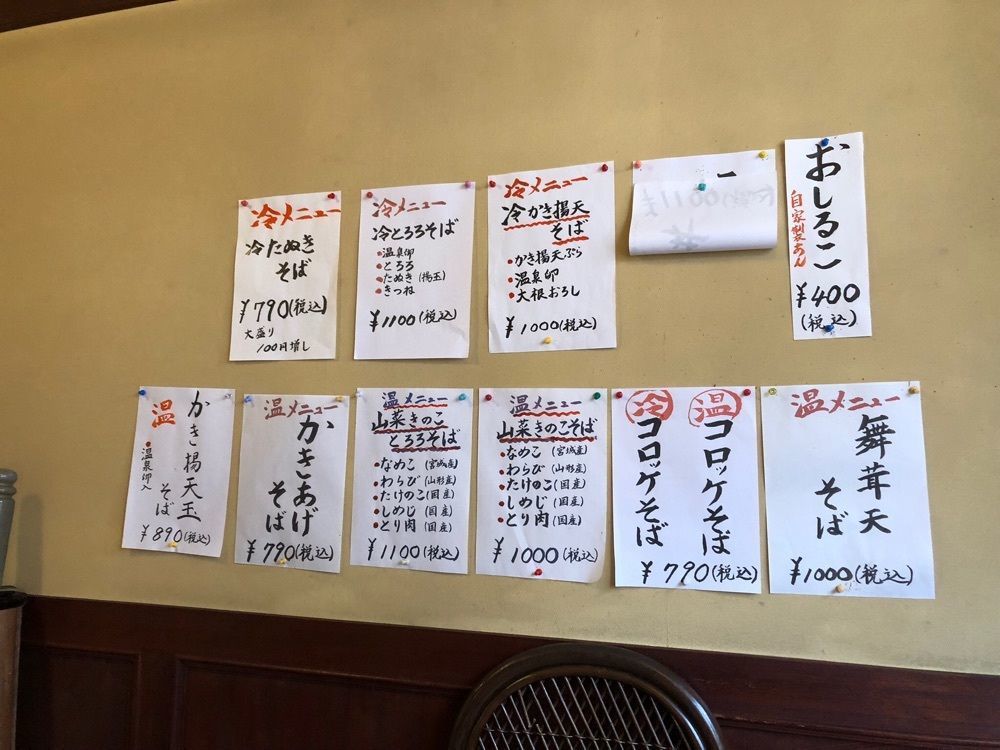 冷メニュー
冷たぬき
そば
¥790(税込)
大盛り
100円増し
冷メニュー
冷とろろそば
・温泉卵
・とろろ
・たぬき(揚玉)
・きつね
¥1100(税込)
冷メニュー
冷かき揚天
そば
・かき揚天ぷら
・温泉卵
・大根おろし
¥1000(税込)
おしるこ
自家製あん
¥400
(税込)
温
かき揚天玉
そば
・温泉卵入
¥890(税込)
温メニュー
かきあげ
そば
¥790(税込)
温メニュー
山菜きのこ
とろろそば
・なめこ(宮城産)
・わらび(山形産)
・たけのこ(国産)
・しめじ(国産)
・とり肉(国産)
¥1100(税込)
温メニュー
山菜きのこそば
・なめこ(宮城産)
・わらび(山形産)
・たけのこ(国産)
・しめじ(国産)
・とり肉(国産)
¥1000(税込)
冷 温
コロッケそば
コロッケそば
¥790(税込)
温メニュー
舞茸天
そば
¥1000(税込)